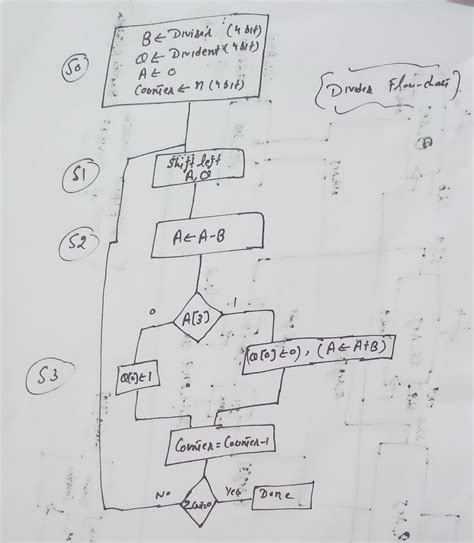 B ← Divisor (4 bit)
Q ← Divident (4 bit)
A ← 0
Counter ← n (4 bit)
S0
(Divider Flow-chart)
S1
Shift left
A, Q
S2
A ← A-B
0
1
A[3]
S3
Q[0] ← 1
(Q[0] ← 0), (A ← A+B)
Counter = Counter-1
No
Yes
Done